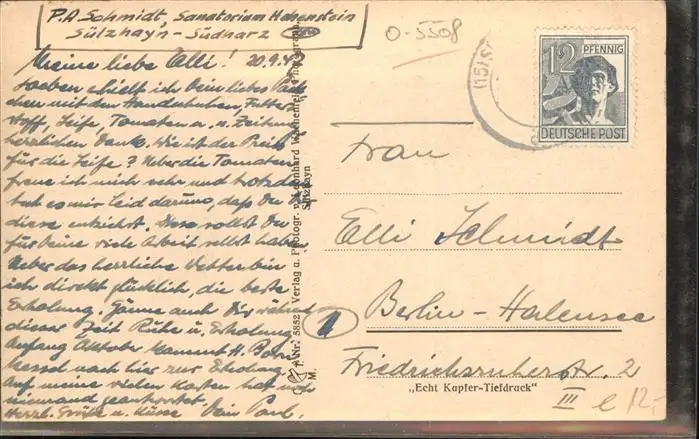 P.A. Schmidt, Sanatorium Hohenstein
Sülzhayn - Südharz
Meine liebe Elli! 20.9.4
Soeben erhielt ich Dein liebes Päck
chen mit den Handschuhen, Futter
stoff, Seife, Tomaten u. Zeitung
herzlichen Dank. Wie ist der Preis
für die Seife? Ueber die Tomaten
freue ich mich sehr und trotzdem
tut es mir leid darum, daß Du Dir
diese entziehst. Diese sollst Du
für Deine viele Arbeit selbst haben
Ueber das herrliche Wetter bin
ich direkt glücklich, die beste
Erholung. Gönne auch Dir während
dieser Zeit Ruhe u. Erholung
Anfang Oktober kommt H.
nach hier zur Erholung.
Auf meine vielen Karten hat noch
niemand geantwortet.
Herzl. Grüße u. Küsse Dein Paul.
Nr. 5852 Verlag u. Photogr. v. Leonhard
Sülzhayn
M.
O-5508
(15)
12 PFENNIG
DEUTSCHE POST
Frau
Elli Schmidt
Berlin-Halensee
1
Friedrichsruherstr. 2
„Echt Kupfer-Tiefdruck"
III
e 12,-